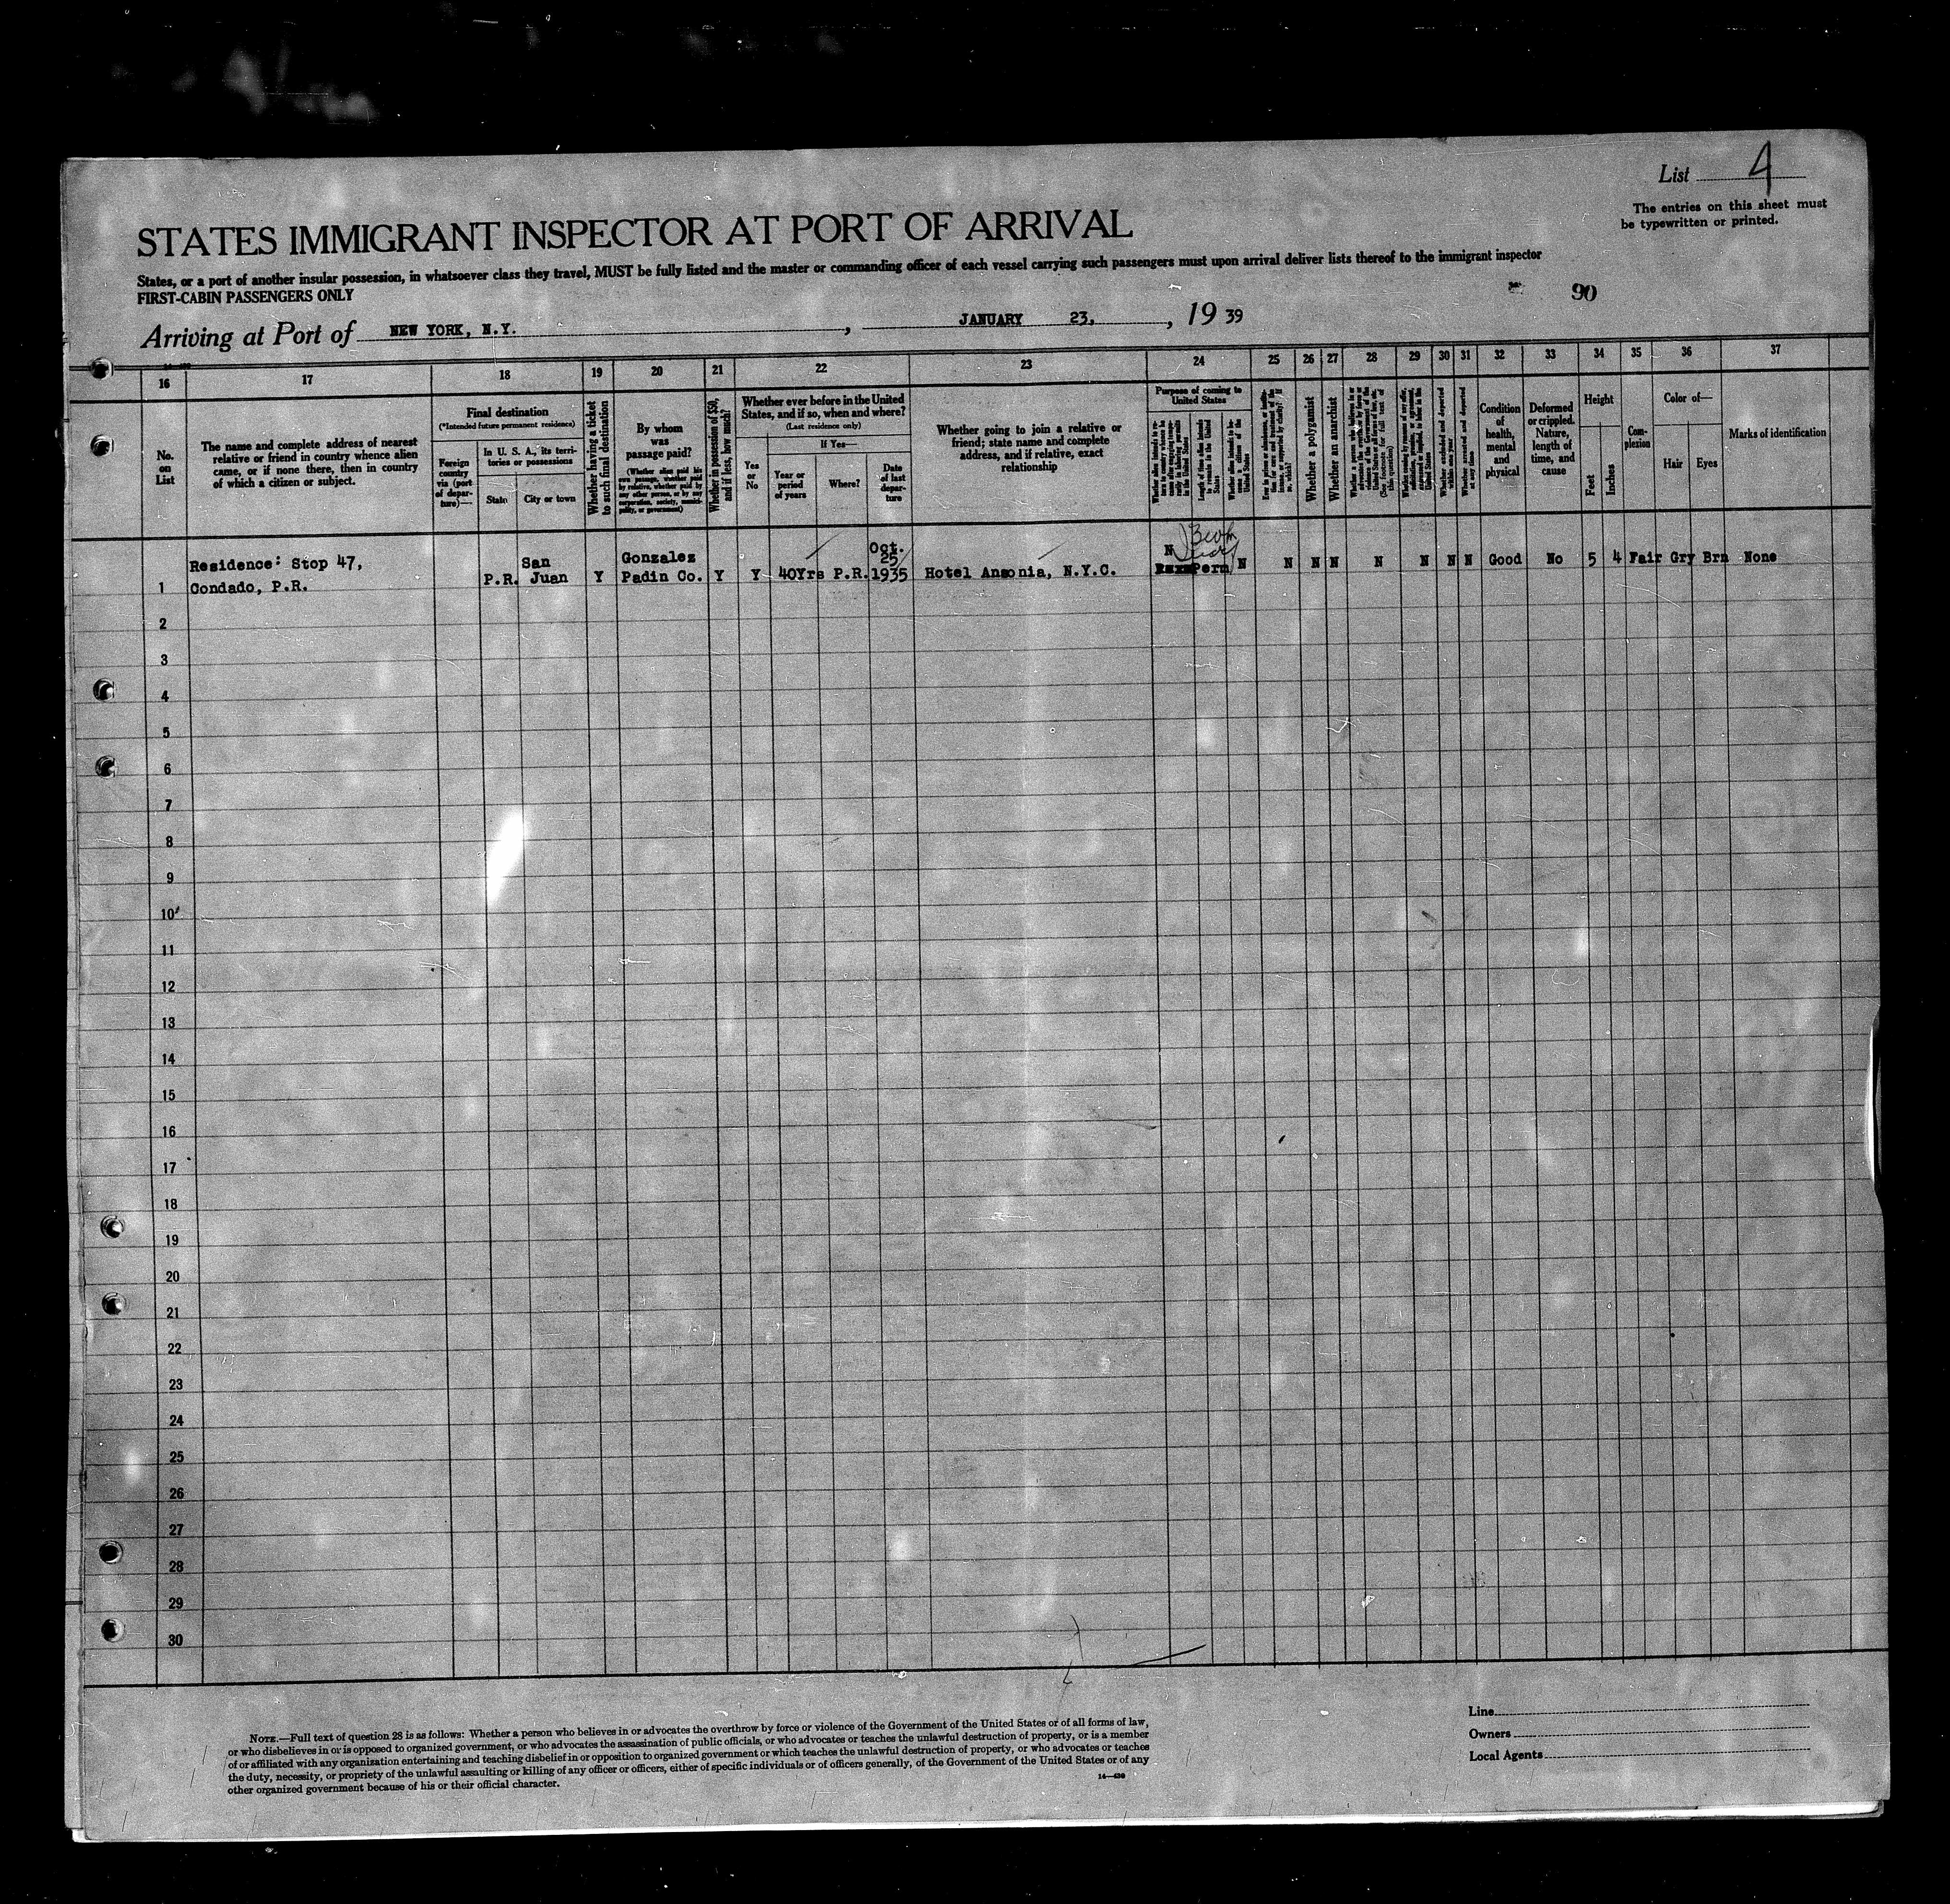 List 4
The entries on this sheet must
be typewritten or printed.
STATES IMMIGRANT INSPECTOR AT PORT OF ARRIVAL
States, or a port of another insular possession, in whatsoever class they travel, MUST be fully listed and the master or commanding officer of each vessel carrying such passengers must upon arrival deliver lists thereof to the immigrant inspector
FIRST-CABIN PASSENGERS ONLY
90
Arriving at Port of NEW YORK, N.Y. , JANUARY 23, , 19 39
16 17 18 19 20 21 22 23 24 25 26 27 28 29 30 31 32 33 34 35 36 37
No.
on
List
The name and complete address of nearest
relative or friend in country whence alien
came, or if none there, then in country
of which a citizen or subject.
Final destination
(*Intended future permanent residence)
Foreign
country
via (port
of depar-
ture)—
In U. S. A., its terri-
tories or possessions
State
City or town
Whether having a ticket
to such final destination
By whom
was
passage paid?
(Whether alien paid his
own passage, whether paid
by relative, whether paid by
any other person, or by any
corporation, society, munici-
pality, or government)
Whether in possession of $50,
and if less, how much?
Whether ever before in the United
States, and if so, when and where?
(Last residence only)
Yes
or
No
If Yes—
Year or
period
of years
Where?
Date
of last
depar-
ture
Whether going to join a relative or
friend; state name and complete
address, and if relative, exact
relationship
Purpose of coming to
United States
Whether a polygamist
Whether an anarchist
Condition
of
health,
mental
and
physical
Deformed
or crippled.
Nature,
length of
time, and
cause
Height
Feet
Inches
Com-
plexion
Color of—
Hair
Eyes
Marks of identification
1 Residence: Stop 47,
Condado, P.R.
P.R. San
Juan
Y
Gonzalez
Padin Co.
Y Y 40Yrs P.R. Oct.
25
1935
Hotel Ansonia, N.Y.C.
N Perm N N N N N N N N Good No 5 4 Fair Gry Brn None
2
3
4
5
6
7
8
9
10
11
12
13
14
15
16
17
18
19
20
21
22
23
24
25
26
27
28
29
30
NOTE.—Full text of question 28 is as follows: Whether a person who believes in or advocates the overthrow by force or violence of the Government of the United States or of all forms of law,
or who disbelieves in or is opposed to organized government, or who advocates the assassination of public officials, or who advocates or teaches the unlawful destruction of property, or is a member
of or affiliated with any organization entertaining and teaching disbelief in or opposition to organized government or which teaches the unlawful destruction of property, or who advocates or teaches
the duty, necessity, or propriety of the unlawful assaulting or killing of any officer or officers, either of specific individuals or of officers generally, of the Government of the United States or of any
other organized government because of his or their official character.
14—430
Line
Owners
Local Agents